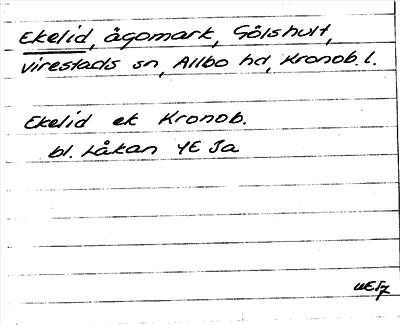 Ekelid, ägomark, Gölshult,
Virestads sn, Allbo hd, Kronob. l.
Ekelid ek Kronob.
bl. Låkan 4E Ja